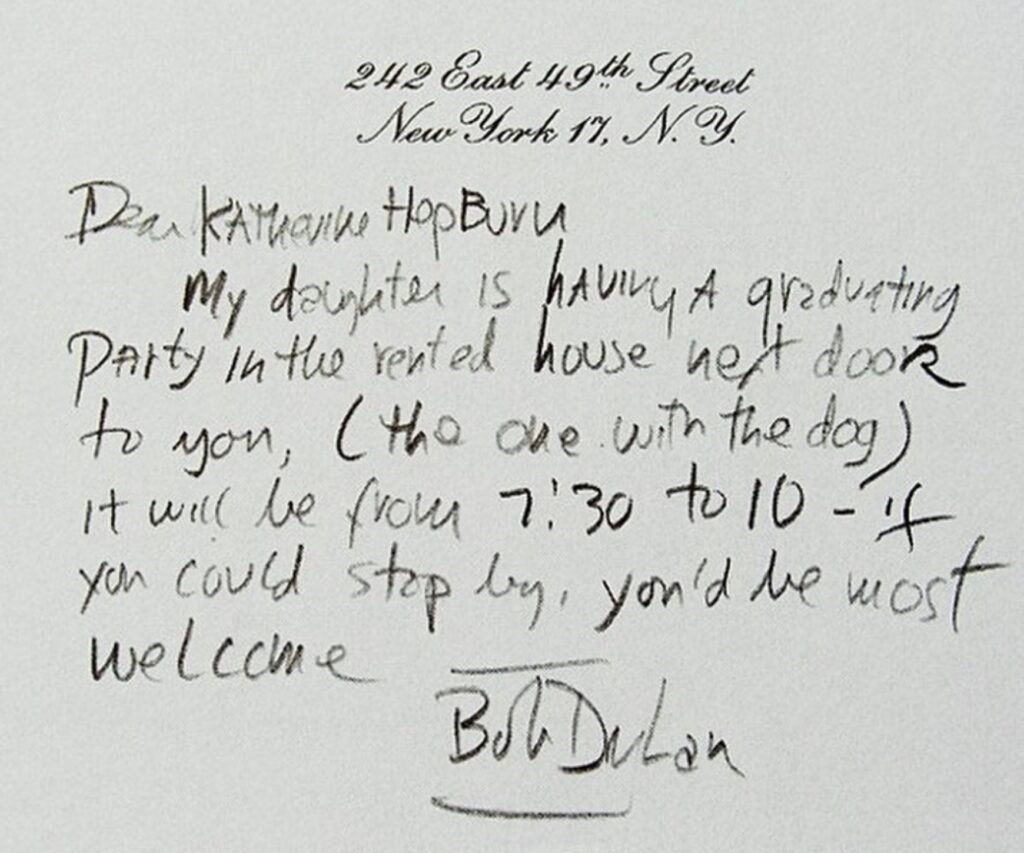 242 East 49th Street
New York 17, N. Y.
Dear KATHarine HepBurn
My daughter is hAVing A graduating
PArty in the rented house next dooR
to you, (the one with the dog)
it will be from 7:30 to 10 - if
you could stop by, you'd be most
welcome
Bob DyLan